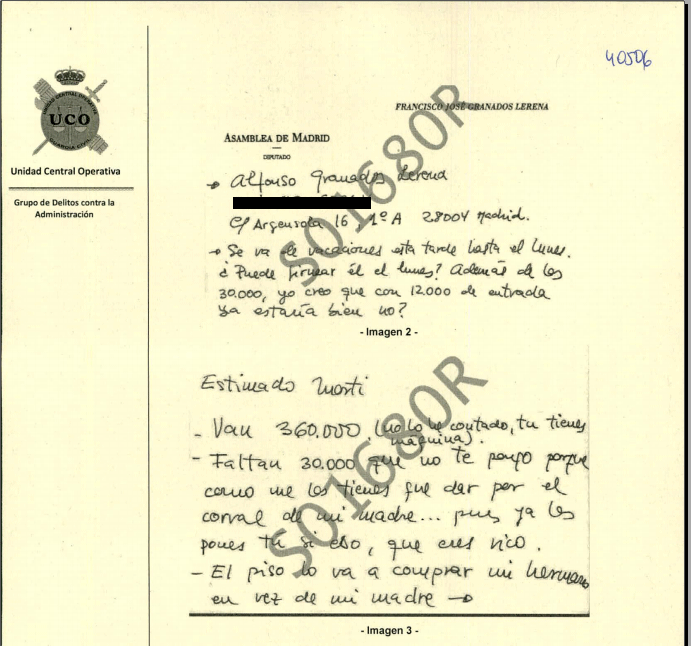 40506
UNIDAD CENTRAL OPERATIVA
UCO
GUARDIA CIVIL
Unidad Central Operativa
Grupo de Delitos contra la
Administración
FRANCISCO JOSÉ GRANADOS LERENA
ASAMBLEA DE MADRID
DIPUTADO
→ Alfonso Granados Lerena
C/ Argensola 16, 1º A 28004 Madrid.
→ Se va de vacaciones esta tarde hasta el lunes.
¿Puede firmar él el lunes? Además de los
30.000, yo creo que con 12.000 de entrada
ya estaría bien no?
S01680R
- Imagen 2 -
Estimado Marti
- Van 360.000. (no lo he contado, tu tienes
maquina).
- Faltan 30.000 que no te pongo porque
como me los tienes que dar por el
corral de mi madre... pues ya los
pones tu si eso, que eres rico.
- El piso lo va a comprar mi hermano
en vez de mi madre →
S01680R
- Imagen 3 -